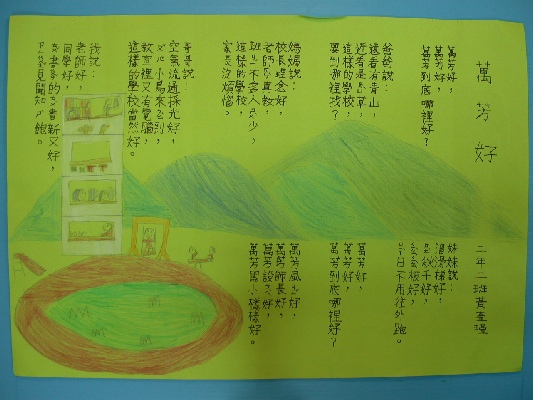 萬芳好
二年二班黃
萬芳好，
萬芳好，
萬芳到底哪裡好？
爸爸說：
遠看有青山，
近看是
這樣的學校，
要到哪裡找？
媽媽說：
校長理念好，
老師認真教，
班上人少，
這樣的學校，
家長沒煩惱。
哥哥說：
空氣流通採光好，
小鳥來到，
教室裡又有電腦，
這樣的學校當然好。
我說：
老師好，
同學好，
書新又好，
妹妹說：
溜滑梯好，
盪鞦千好，
板好，
日不用往外跑。
萬芳好，
萬芳好，
萬芳到底哪裡好？
萬芳風水好，
萬芳師長好，
萬芳設備好，
萬芳國小樣樣好。